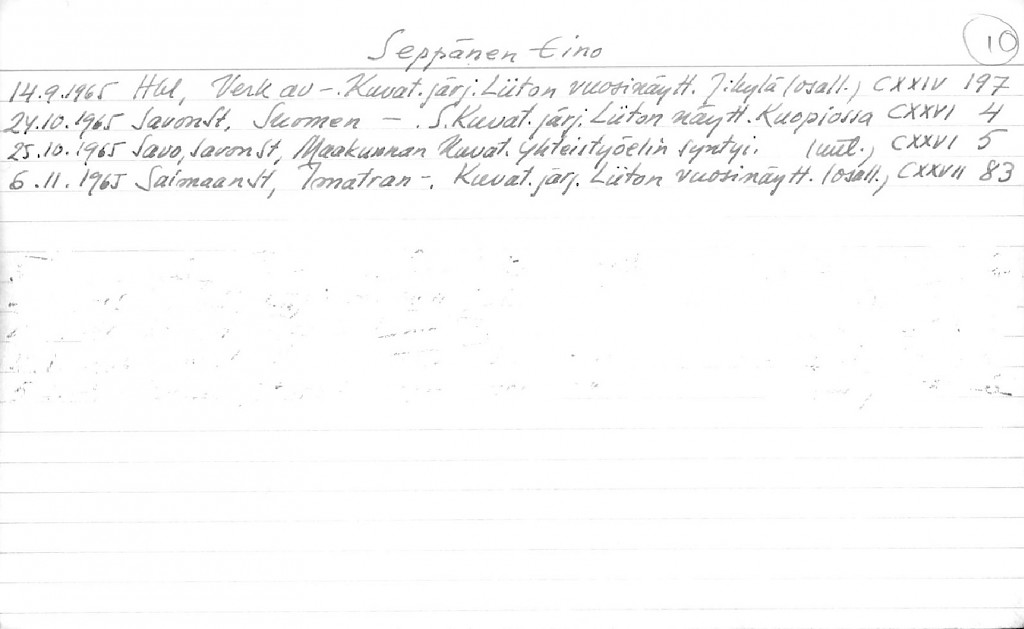 Seppänen Eino
10
14.9.1965 Hbl, Verk av -. Kuvat.järj. Liiton vuosinäytt. J:kylä (osall.) CXXIV 197
24.10.1965 SavonSt, Suomen - . S. Kuvat. järj. Liiton näytt. Kuopiossa CXXVI 4
25.10.1965 Savo, SavonSt, Maakunnan Kuvat. yhteistyöelin syntyi. (uut.) CXXVI 5
6.11.1965 SaimaanSt, Imatran -. Kuvat. järj. Liiton vuosinäytt. (osall.) CXXVII 83